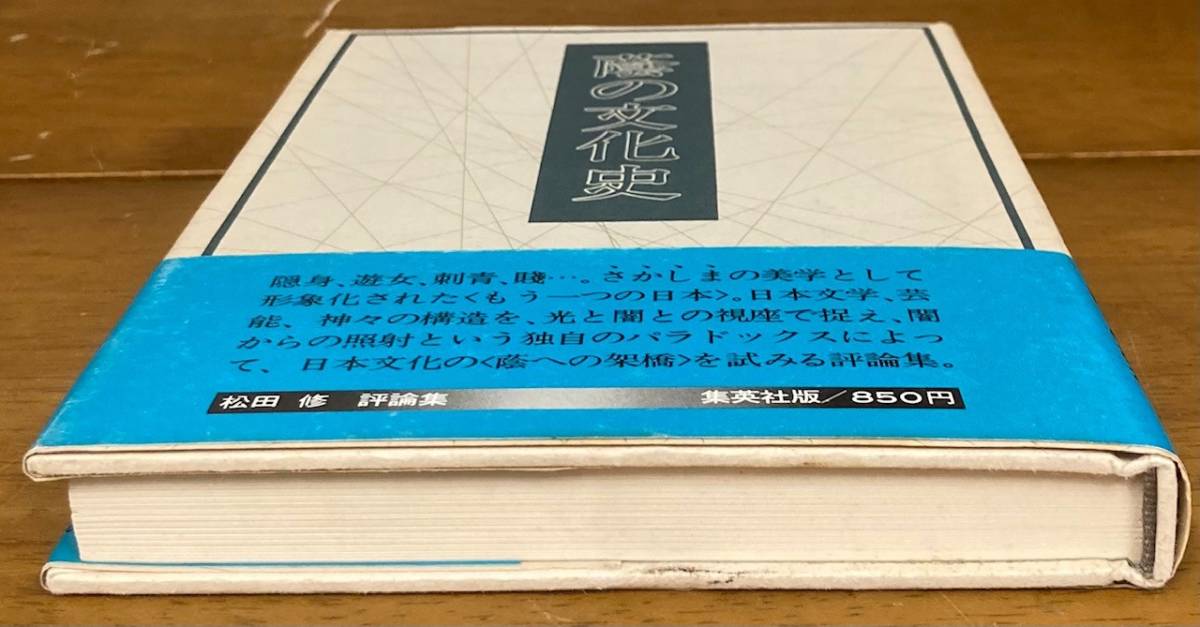 蔭の文化史
隠身、遊女、刺青、賤…。さかしまの美学として
形象化された〈もう一つの日本〉。日本文学、芸
能、神々の構造を、光と闇との視座で捉え、闇
からの照射という独自のパラドックスによっ
て、日本文化の〈蔭への架橋〉を試みる評論集。
松田 修 評論集 集英社版/850円